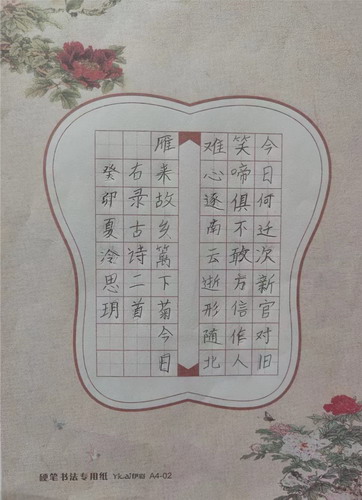 今日何迁次新官对旧
笑啼俱不敢方信作人
难心逐南云逝形随北
雁来故乡篱下菊今日
右录古诗二首
癸卯夏冷思玥
硬笔书法专用纸 A4-02